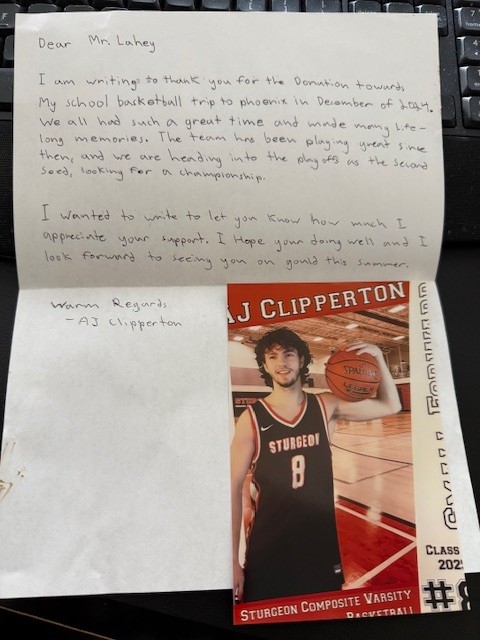 Dear Mr. Lahey
I am writing to thank you for the Donation towards
My school basketball trip to phoenix in December of 2024.
We all had such a great time and made many life-
long memories. The team has been playing great since
then, and we are heading into the playoffs as the second
seed, looking for a championship.
I wanted to write to let you know how much I
appreciate your support. I Hope your doing well and I
look forward to seeing you on gould this summer.
Warm Regards
- AJ Clipperton
AJ CLIPPERTON
SPALDING
LEGACY
STURGEON
8
CLASS
STURGEON COMPOSITE VARSITY
BASKETBALL